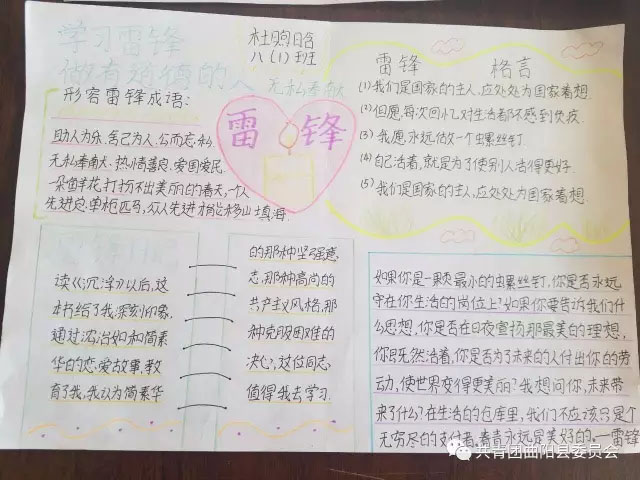 学习雷锋
做有道德的人
无私奉献
八(1)班
形容雷锋成语:
助人为乐,舍己为人,公而忘私.
无私奉献,热情善良,爱国爱民.
一朵鲜花打扮不出美丽的春天,一个人
先进总单枪匹马,众人先进才能移山填海
雷锋
雷锋 格言
(1)我们是国家的主人,应处处为国家着想.
(2)但愿,每次回忆,对生活都不感到负疚.
(3)我愿永远做一个螺丝钉.
(4)自己活着,就是为了使别人活得更好.
(5)我们是国家的主人,应处处为国家着想.
读《沉浮》以后,这
本书给了我,深刻印象,
通过沈治如和简素
华的恋爱故事,教
育了我,我认为简素华
的那种坚强意
志,那种高尚的
共产主义风格,那
种克服困难的
决心,这位同志,
值得我去学习.
如果你是一颗最小的螺丝钉,你是否永远
守在你生活的岗位上?如果你要告诉我们什
么思想,你是否在日夜宣扬那最美的理想,
你既然活着,你是否为了未来的人付出你的劳
动,使世界变得更美丽?我想问你,未来带
来了什么?在生活的仓库里,我们不应该只是个
无穷尽的支付者,青春永远是美好的.—雷锋
共青团曲阳县委员会